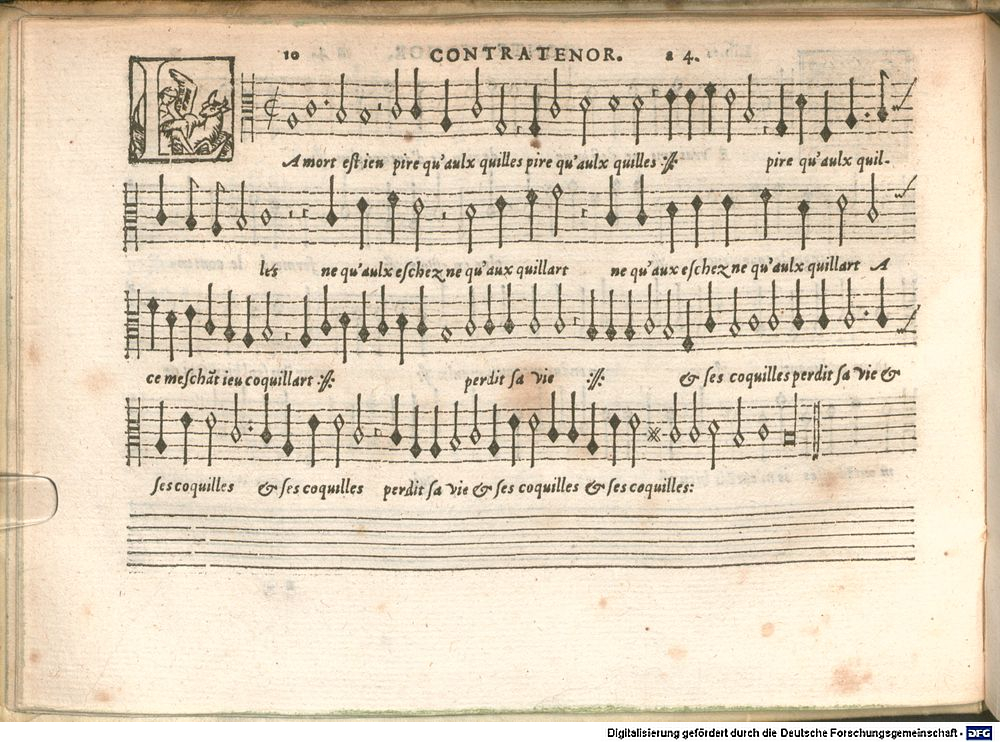 10 CONTRATENOR. a 4.
LA mort est ieu pire qu'aulx quilles pire qu'aulx quilles ://: pire qu'aulx quil-
les ne qu'aulx eschez ne qu'aux quillart ne qu'aux eschez ne qu'aulx quillart A
ce meschãt ieu coquillart ://: perdit sa vie ://: & ses coquilles perdit sa vie &
ses coquilles & ses coquilles perdit sa vie & ses coquilles & ses coquilles:
Digitalisierung gefördert durch die Deutsche Forschungsgemeinschaft - DFG